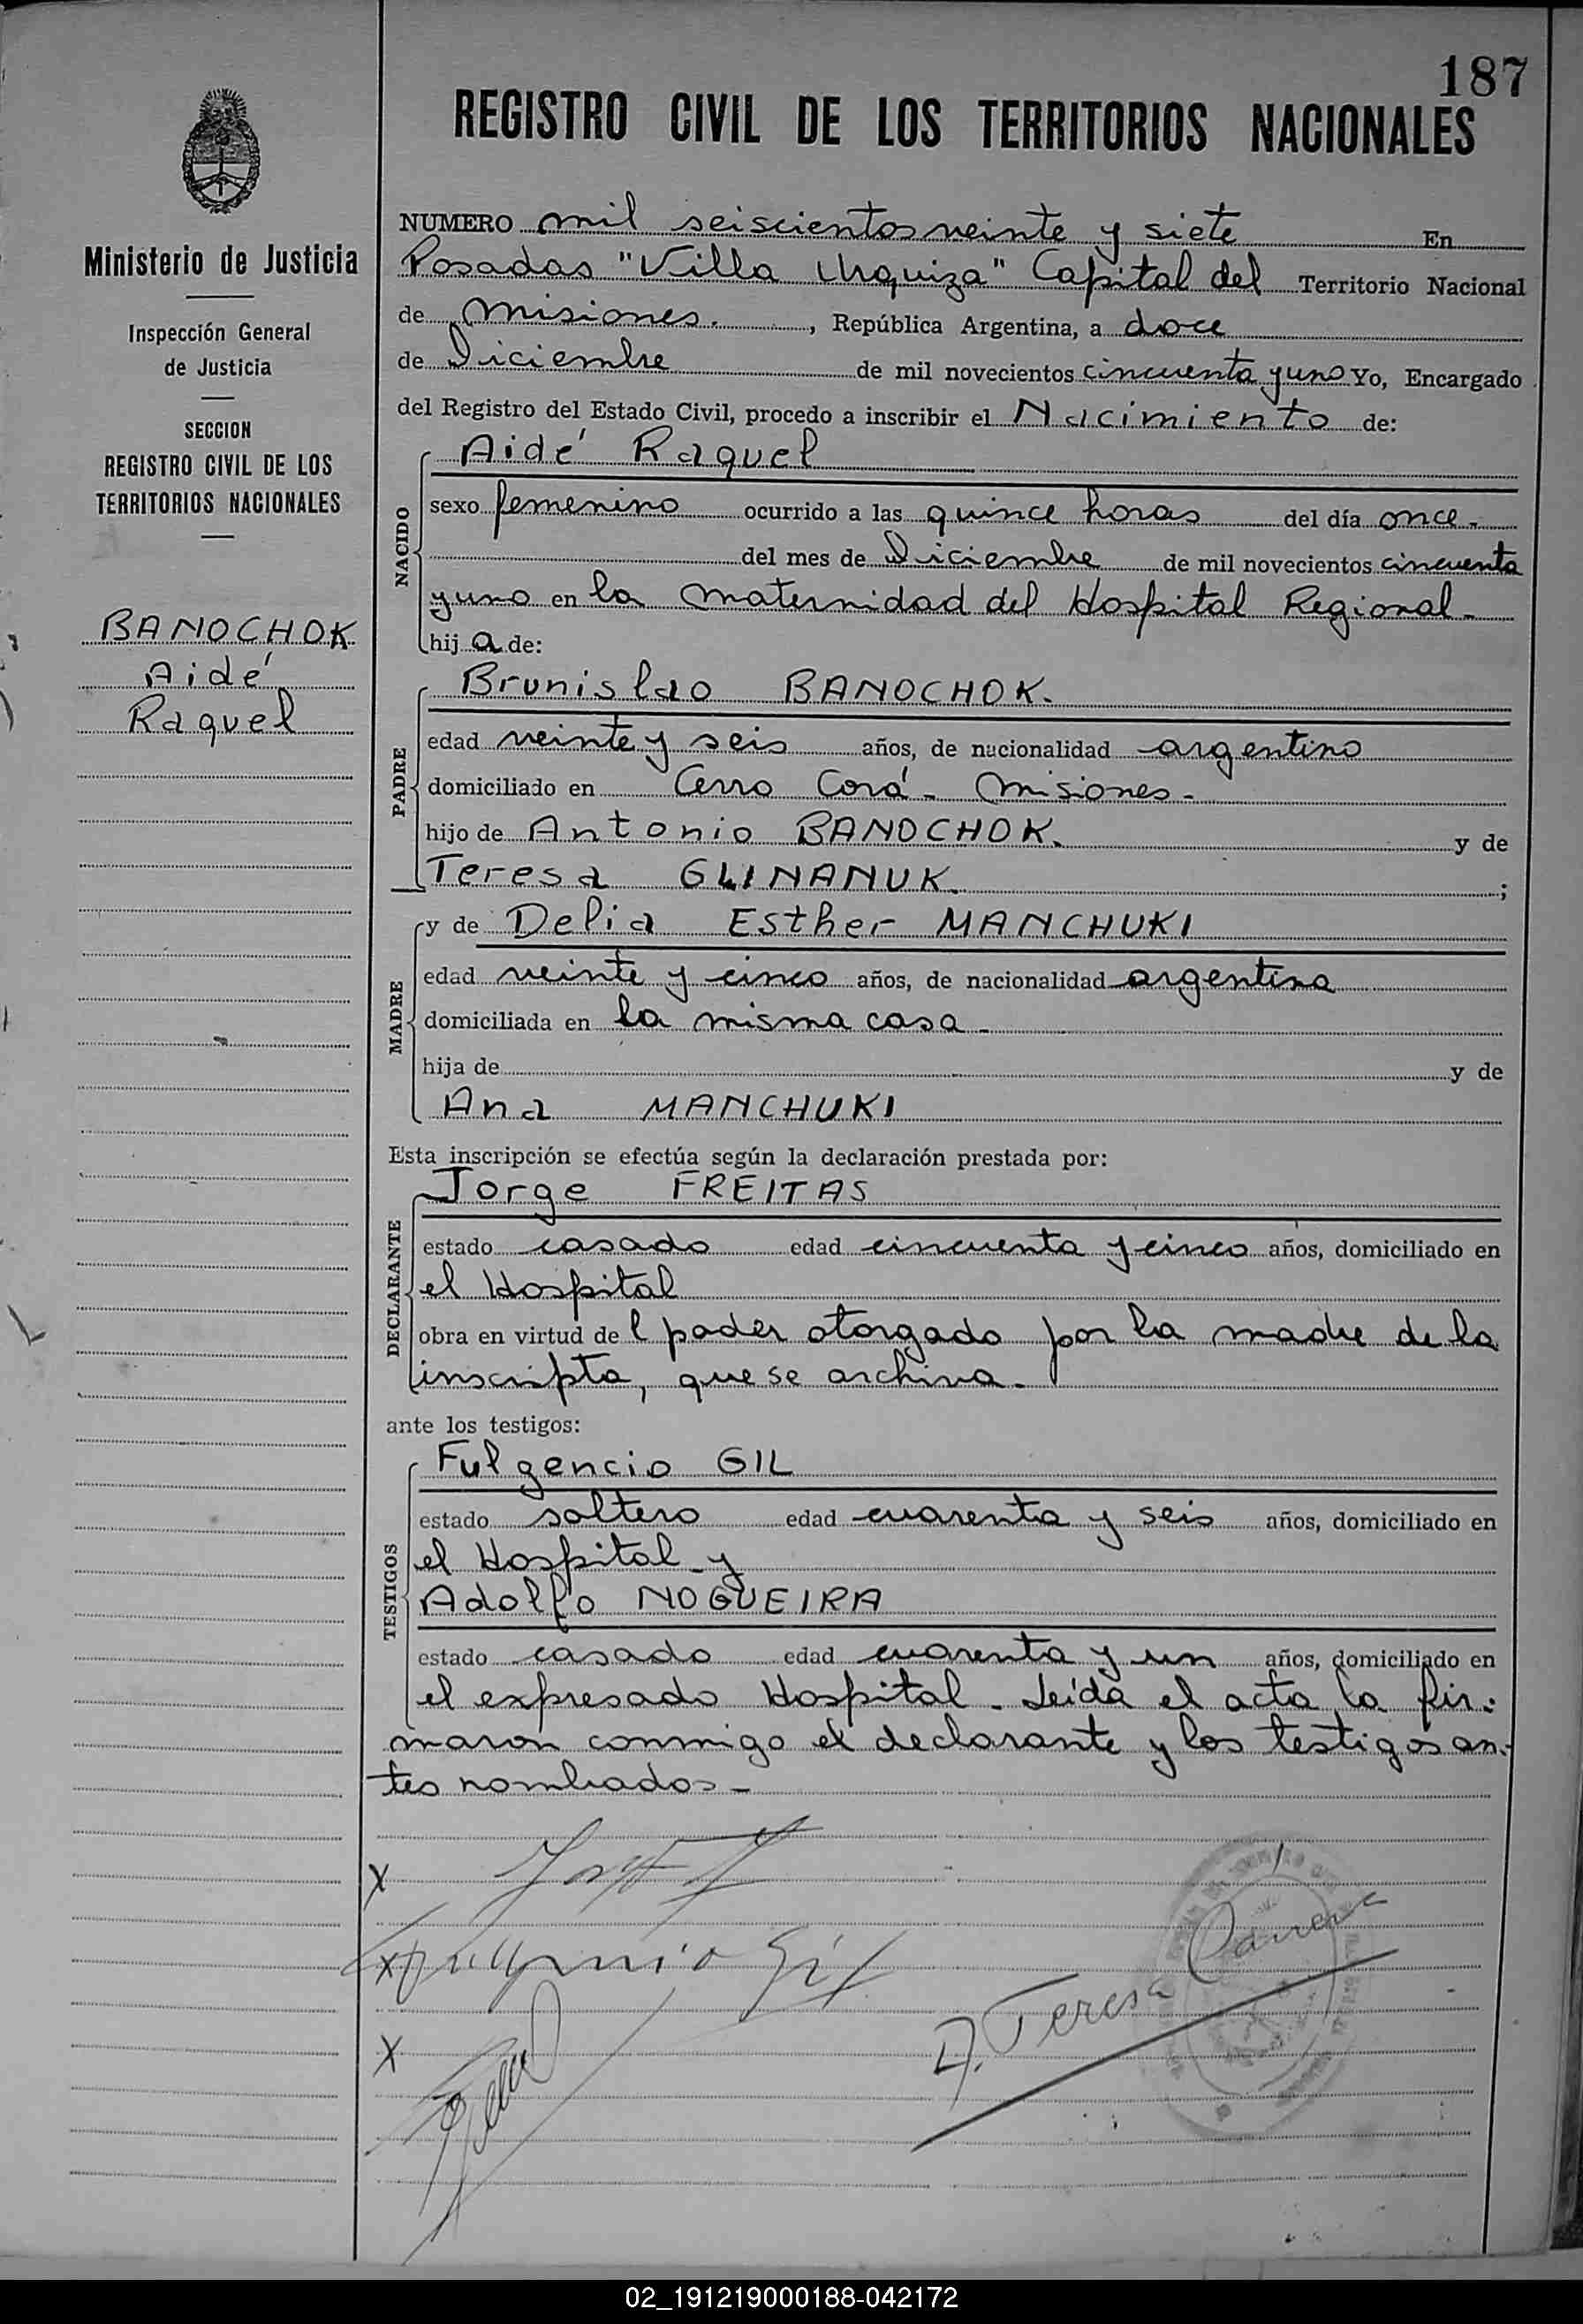 187
REGISTRO CIVIL DE LOS TERRITORIOS NACIONALES
Ministerio de Justicia
Inspección General
de Justicia
SECCION
REGISTRO CIVIL DE LOS
TERRITORIOS NACIONALES
BANOCHOK
Aidé
Raquel
NUMERO mil seiscientos veinte y siete En
Posadas "Villa Urquiza" Capital del Territorio Nacional
de Misiones. , República Argentina, a doce
de Diciembre de mil novecientos cincuenta y uno Yo, Encargado
del Registro del Estado Civil, procedo a inscribir el Nacimiento de:
NACIDO
Aidé Raquel
sexo femenino ocurrido a las quince horas del día once.
del mes de Diciembre de mil novecientos cincuenta
y uno en la maternidad del Hospital Regional-
hij a de:
PADRE
Brunislao BANOCHOK.
edad veinte y seis años, de nacionalidad argentino
domiciliado en Cerro Corá - Misiones-
hijo de Antonio BANOCHOK. y de
Teresa GLINANUK. ;
MADRE
y de Delia Esther MANCHUKI
edad veinte y cinco años, de nacionalidad argentina
domiciliada en la misma casa-
hija de y de
Ana MANCHUKI
Esta inscripción se efectúa según la declaración prestada por:
DECLARANTE
Jorge FREITAS
estado casado edad cincuenta y cinco años, domiciliado en
el Hospital
obra en virtud de l poder otorgado por la madre de la
inscripta, que se archiva.
ante los testigos:
TESTIGOS
Fulgencio GIL
estado soltero edad cuarenta y seis años, domiciliado en
el Hospital y
Adolfo NOGUEIRA
estado casado edad cuarenta y un años, domiciliado en
el expresado Hospital. Leída el acta la fir-
maron conmigo el declarante y los testigos an-
tes nombrados-
X
X Fulgencio Gil
X
D. Teresa
02_191219000188-042172